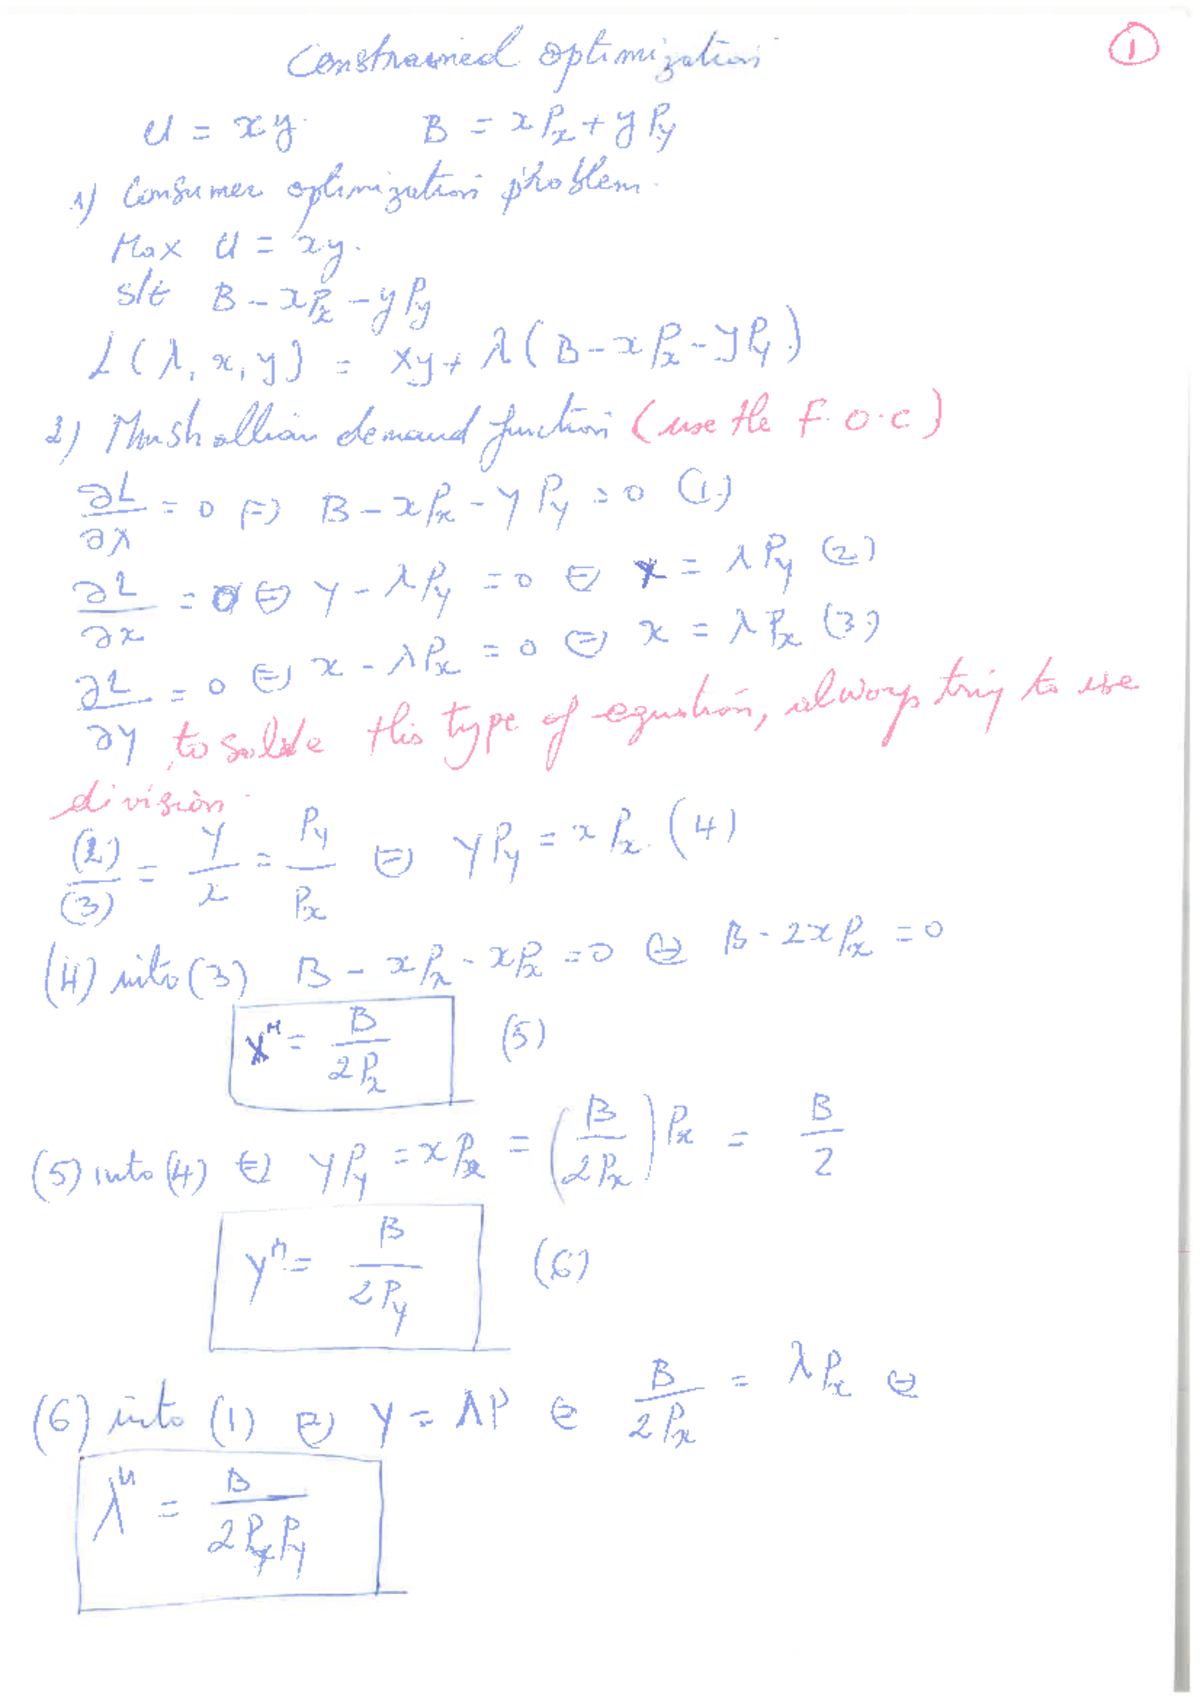 Constrained optimization
1
U = xy. B = xPx + yPy
1) Consumer optimization problem.
Max U = xy.
s/t B - xPx - yPy
L(λ, x, y) = xy + λ(B - xPx - yPy)
2) Marshallian demand function (use the F.O.C)
∂L/∂λ = 0 ⇔ B - xPx - yPy = 0 (1)
∂L/∂x = 0 ⇔ y - λPy = 0 ⇔ x = λPy (2)
∂L/∂y = 0 ⇔ x - λPx = 0 ⇔ x = λPx (3)
to solve this type of equation, always try to use
division.
(2)/(3) = y/x = Py/Px ⇔ yPy = xPx. (4)
(4) into (3) B - xPx - xPx = 0 ⇔ B - 2xPx = 0
x^M = B/2Px (5)
(5) into (4) ⇔ yPy = xPx = (B/2Px)Px = B/2
y^M = B/2Py (6)
(6) into (1) ⇔ y = λP ⇔ B/2Px = λPx ⇔
λ^M = B/2PxPy